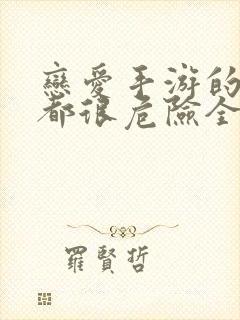 戀愛手游的
都很危險全
羅賢哲